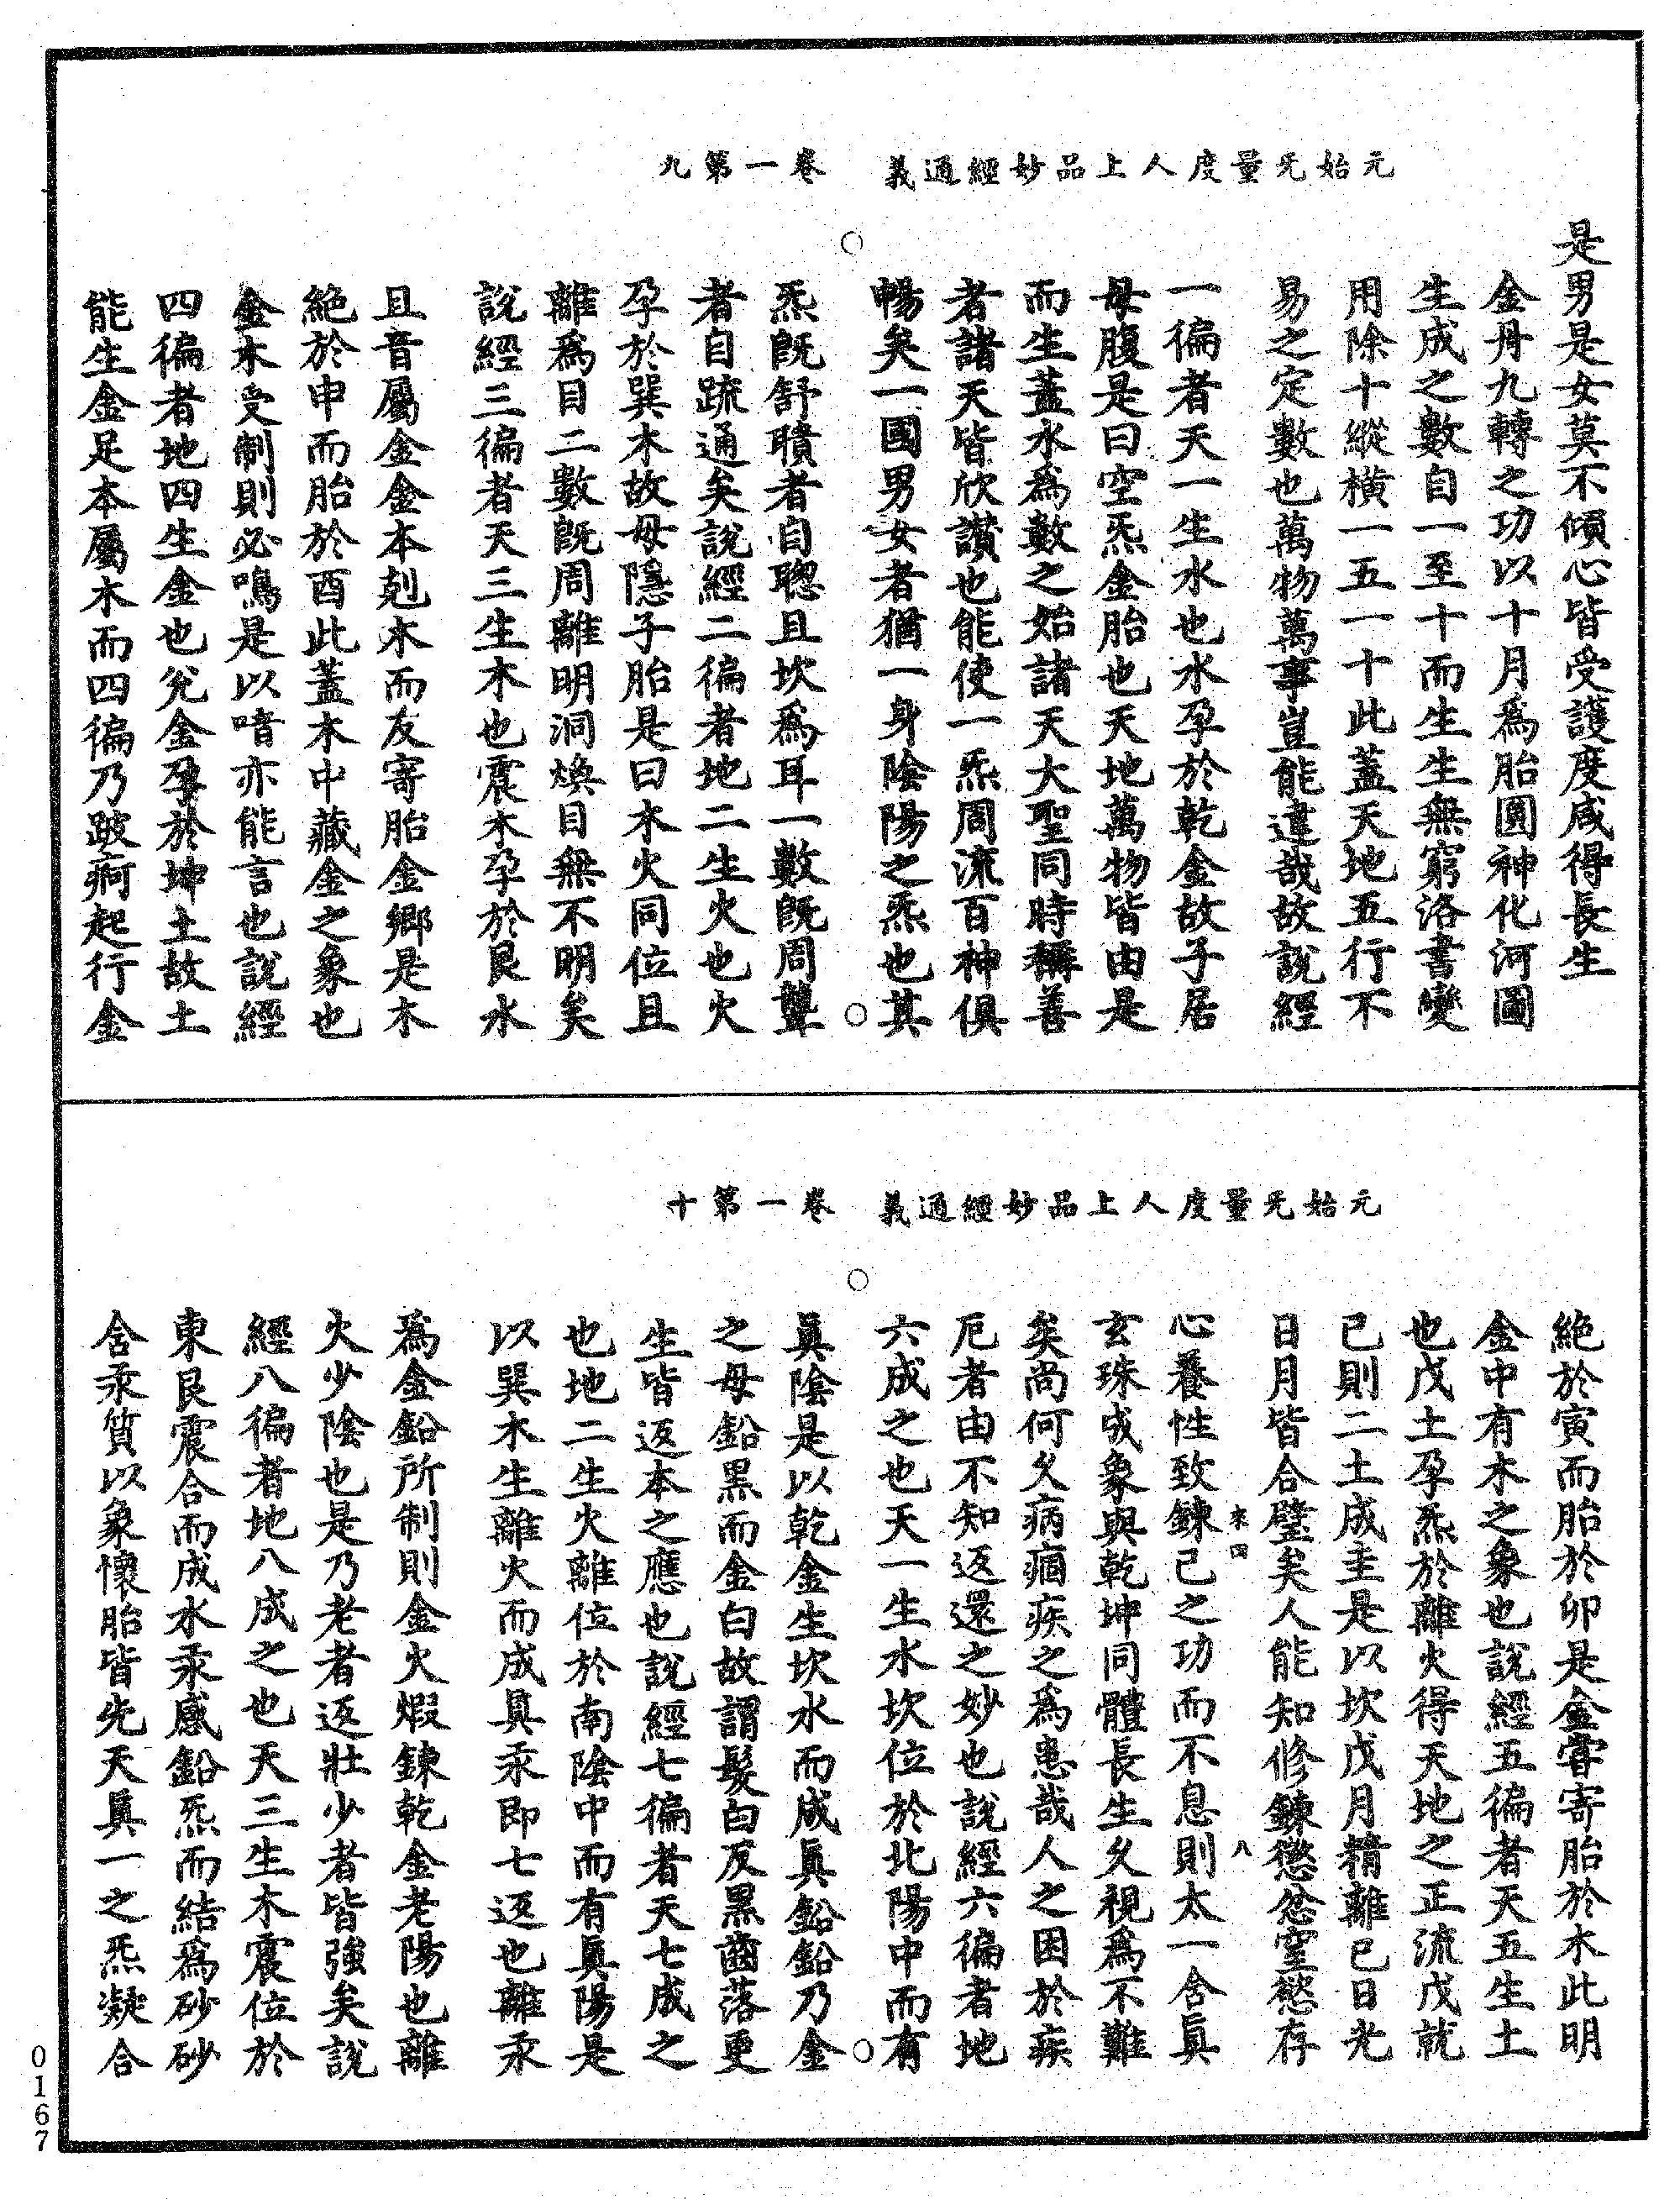 元始旡量度人上品妙經通義　卷一第九
是男是女莫不傾心皆受護度咸得長生
金丹九轉之功以十月爲胎圓神化河圖
生成之數自一至十而生生無窮洛書變
用除十縱橫一五一十此蓋天地五行不
易之定數也萬物萬事豈能違哉故說經
一徧者天一生水也水孕於乾金故子居
母腹是曰空炁金胎也天地萬物皆由是
而生蓋水爲數之始諸天大聖同時稱善
者諸天皆欣讚也能使一炁周流百神俱
暢矣一國男女者猶一身陰陽之炁也其
炁旣舒聵者自聰且坎爲耳一數旣周聾
者自疏通矣說經二徧者地二生火也火
孕於巽木故母隱子胎是曰木火同位且
離爲目二數旣周離明洞煥目無不明矣
說經三徧者天三生木也震木孕於艮水
且音屬金金本剋木而反寄胎金鄉是木
絕於申而胎於酉此蓋木中藏金之象也
金木受制則必鳴是以喑亦能言也說經
四徧者地四生金也兊金孕於坤土故土
能生金足本屬木而四徧乃跛痾起行金
元始旡量度人上品妙經通義　卷一第十
絕於寅而胎於卯是金嘗寄胎於木此明
金中有木之象也說經五徧者天五生土
也戊土孕炁於離火得天地之正流戊就
己則二土成圭是以坎戊月精離己日光
日月皆合璧矣人能知修鍊懲忿窒慾存
來四　八
心養性致鍊己之功而不息則太一含眞
玄珠成象與乾坤同體長生久視爲不難
矣尚何久病痼疾之爲患哉人之困於疾
厄者由不知返還之妙也說經六徧者地
六成之也天一生水坎位於北陽中而有
眞陰是以乾金生坎水而成眞鉛鉛乃金
之母鉛黑而金白故謂髮白反黑齒落更
生皆返本之應也說經七徧者天七成之
也地二生火離位於南陰中而有眞陽是
以巽木生離火而成眞汞即七返也離汞
爲金鉛所制則金火煆鍊乾金老陽也離
火少陰也是乃老者返壯少者皆強矣說
經八徧者地八成之也天三生木震位於
東艮震合而成水汞感鉛炁而結爲砂砂
含汞質以象懷胎皆先天眞一之炁凝合
0167